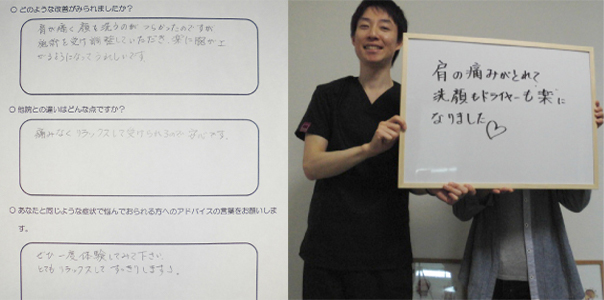 ○ どのような改善がみられましたか？
肩が痛く 顔を洗うのが つらかったのですが
施術を受け 調整していただき 楽に腕が上
がるようになって うれしいです
○ 他院との違いはどんな点ですか？
痛みなく リラックスして 受けられるのが
○ あなたと同じような症状で悩んでおられる方へのアドバイスの言葉をお願いしま
す。
ぜひ 一度 体験してみて下さい
とても リラックスして すっきりします♪
肩の痛みがとれて
洗顔もドライヤーも楽に
なりました♡